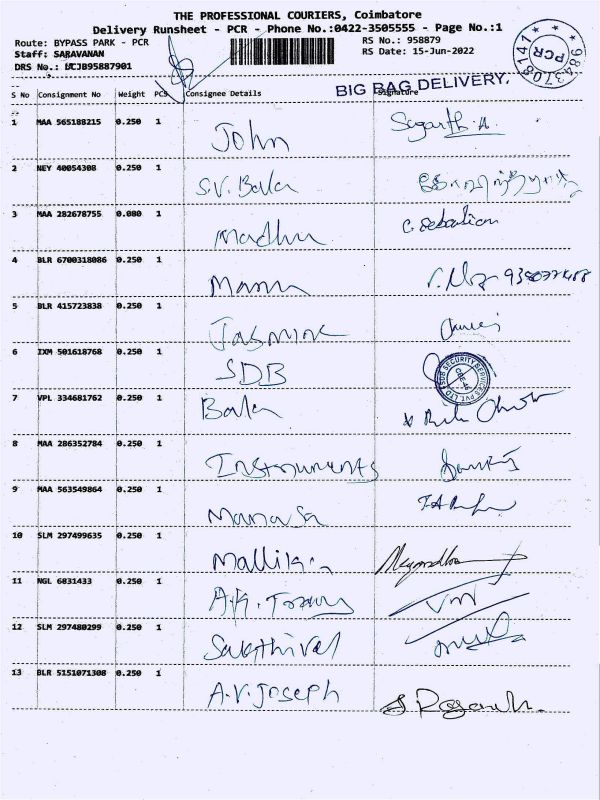 THE PROFESSIONAL COURIERS, Coimbatore
Delivery Runsheet - PCR - Phone No.:0422-3505555 - Page No.:1
Route: BYPASS PARK - PCR RS No.: 958879
Staff: SARAVANAN RS Date: 15-Jun-2022
DRS No.: UCJB95887901
* 9843708141 * PCR
BIG BAG DELIVERY.
S No Consignment No Weight PCS Consignee Details Signature
1 MAA 565188215 0.250 1 John
2 NEY 40054308 0.250 1 S.V. Bala
3 MAA 282678755 0.080 1 Madhu C. Sebastian
4 BLR 6700318086 0.250 1 Mannu
5 BLR 415723838 0.250 1 Jasmine
6 IXM 501618768 0.250 1 SDB SDB SECURITY SERVICES PVT. LTD
7 VPL 334681762 0.250 1 Bala
8 MAA 286352784 0.250 1 Instruments
9 MAA 563549864 0.250 1 Manasa
10 SLM 297499635 0.250 1 Mallika
11 NGL 6831433 0.250 1 A.K.
12 SLM 297480299 0.250 1 Sakthivel
13 BLR 5151071308 0.250 1 A.V. Joseph